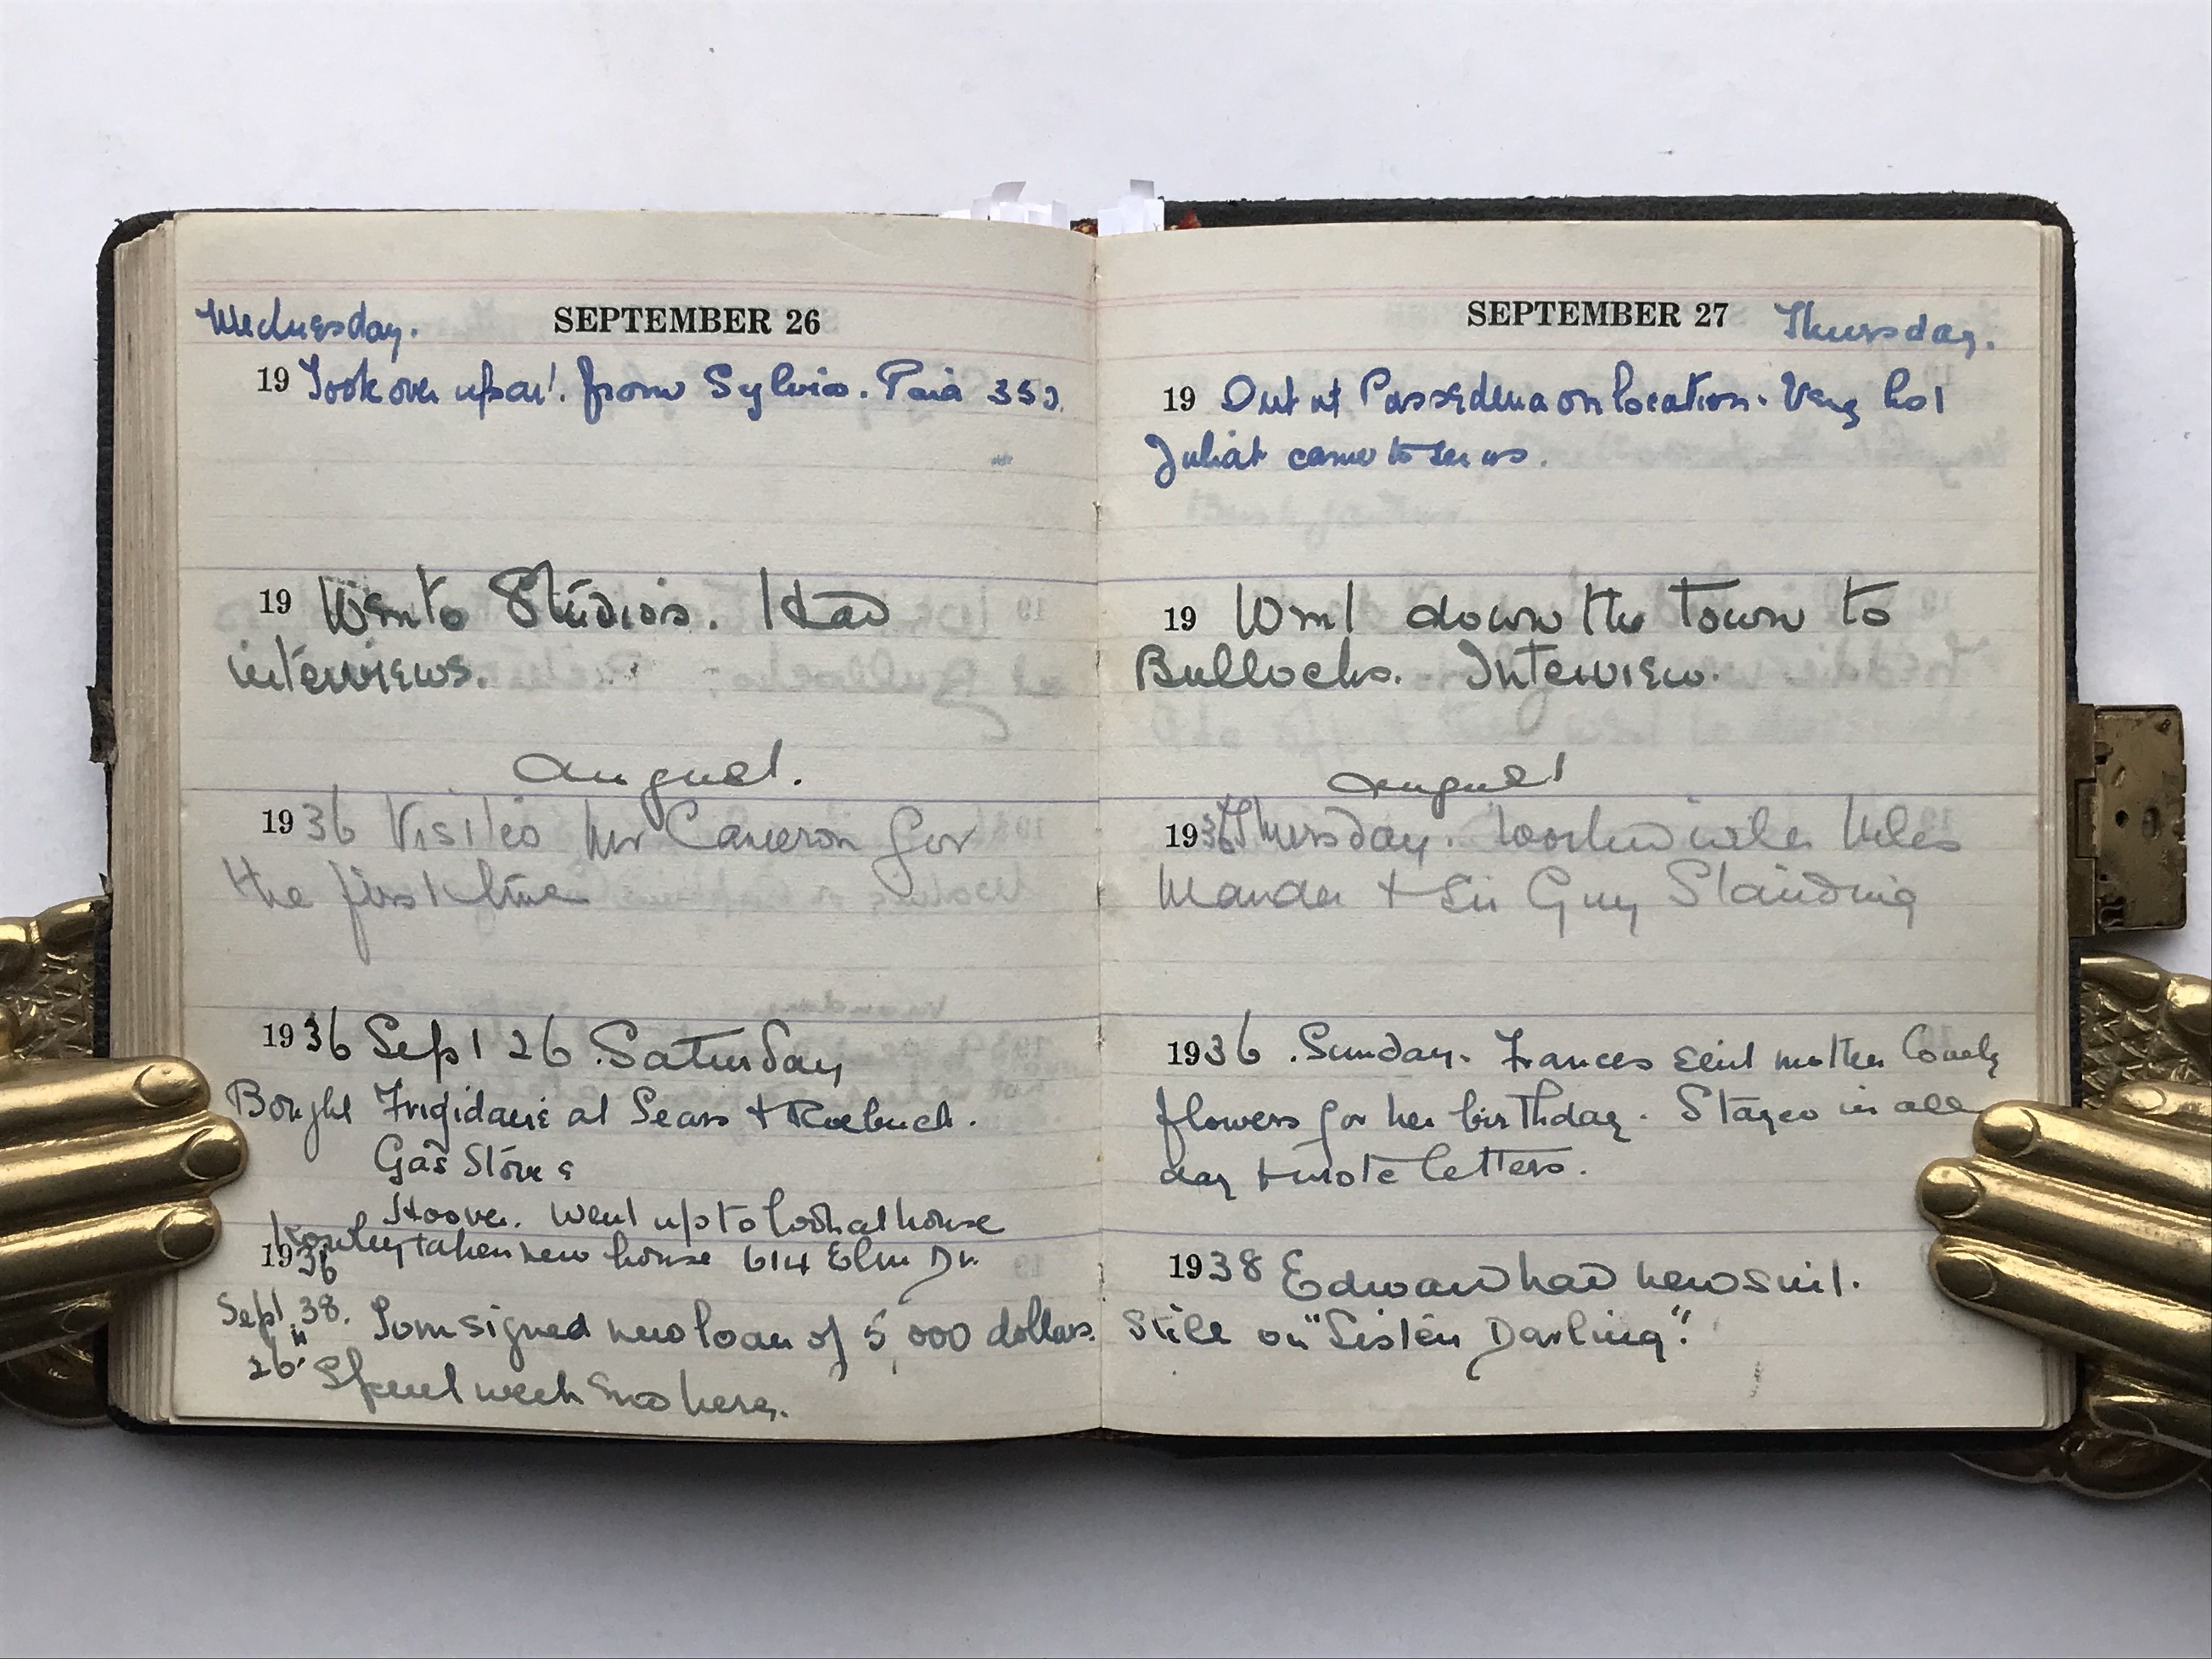 Wednesday.
SEPTEMBER 26
19 Took over from Sylvia. Paid
19 Wen to Studios. Had
interviews.
August.
1936 Visited Mr Cameron for
the first time
1936 Sept 26. Saturday
Bought Frigidaire at Sears + Roebuck.
Gas Stove
Hoover. Went up to look at house
taken new house 614 Elm Dr.
1936
Sept. 38. Tom signed new loan of 5,000 dollars.
26" Spent week here.
SEPTEMBER 27 Thursday.
19 Out at Passedena on location. Very hot
Juliat came to see us.
19 Went down the town to
Bullocks. Interview.
August
1936 Thursday. Worked with Miles
Mander + Sir Guy Standing
1936. Sunday. Frances sent mother lovely
flowers for her birthday. Stayed in all
day + wrote letters.
1938 Edward had new suit.
Still on "Listen Darling".